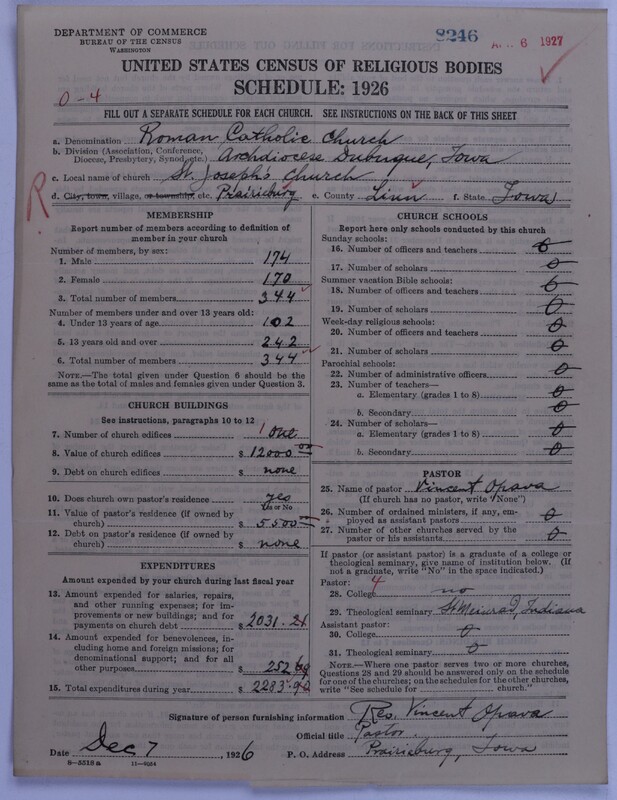 DEPARTMENT OF COMMERCE
BUREAU OF THE CENSUS
WASHINGTON
8246
6 1927
UNITED STATES CENSUS OF RELIGIOUS BODIES
SCHEDULE: 1926
0-4
FILL OUT A SEPARATE SCHEDULE FOR EACH CHURCH. SEE INSTRUCTIONS ON THE BACK OF THIS SHEET
a. Denomination Roman Catholic Church
b. Division (Association, Conference, Diocese, Presbytery, Synod, etc.) Archdiocese Dubuque, Iowa
c. Local name of church St. Joseph's Church
R
d. City, town, village, or township, etc. Prairieburg e. County Linn f. State Iowa
MEMBERSHIP
Report number of members according to definition of
member in your church
Number of members, by sex:
1. Male 174
2. Female 170
3. Total number of members 344
Number of members under and over 13 years old:
4. Under 13 years of age 102
5. 13 years old and over 242
6. Total number of members 344
NOTE.—The total given under Question 6 should be
the same as the total of males and females given under Question 3.
CHURCH BUILDINGS
See instructions, paragraphs 10 to 12
7. Number of church edifices 1 one
8. Value of church edifices $ 12000 00
9. Debt on church edifices $ none
10. Does church own pastor's residence yes
Yes or No
11. Value of pastor's residence (if owned by
church) $ 5500
12. Debt on pastor's residence (if owned by
church) $ none
EXPENDITURES
Amount expended by your church during last fiscal year
13. Amount expended for salaries, repairs,
and other running expenses; for im-
provements or new buildings; and for
payments on church debt $ 2031.21
14. Amount expended for benevolences,
including home and foreign missions; for
denominational support; and for all
other purposes $ 252 69
15. Total expenditures during year $ 2283.90
CHURCH SCHOOLS
Report here only schools conducted by this church
Sunday schools:
16. Number of officers and teachers 0
17. Number of scholars 0
Summer vacation Bible schools:
18. Number of officers and teachers 0
19. Number of scholars 0
Week-day religious schools:
20. Number of officers and teachers 0
21. Number of scholars 0
Parochial schools:
22. Number of administrative officers 0
23. Number of teachers—
a. Elementary (grades 1 to 8) 0
b. Secondary 0
24. Number of scholars—
a. Elementary (grades 1 to 8) 0
b. Secondary 0
PASTOR
25. Name of pastor Vincent Opava
(If church has no pastor, write "None")
26. Number of ordained ministers, if any, em-
ployed as assistant pastors 0
27. Number of other churches served by the
pastor or his assistants 0
If pastor (or assistant pastor) is a graduate of a college or
theological seminary, give name of institution below. (If
not a graduate, write "No" in the space indicated.)
Pastor: 4
28. College no
29. Theological seminary St Meinrad, Indiana
Assistant pastor:
30. College 0
31. Theological seminary 0
NOTE.—Where one pastor serves two or more churches,
Questions 28 and 29 should be answered only on the schedule
for one of the churches; on the schedules for the other churches,
write "See schedule for church."
Signature of person furnishing information Rev. Vincent Opava
Official title Pastor
Date Dec 7, 1926 P. O. Address Prairieburg, Iowa
8—5518 a 11—9254